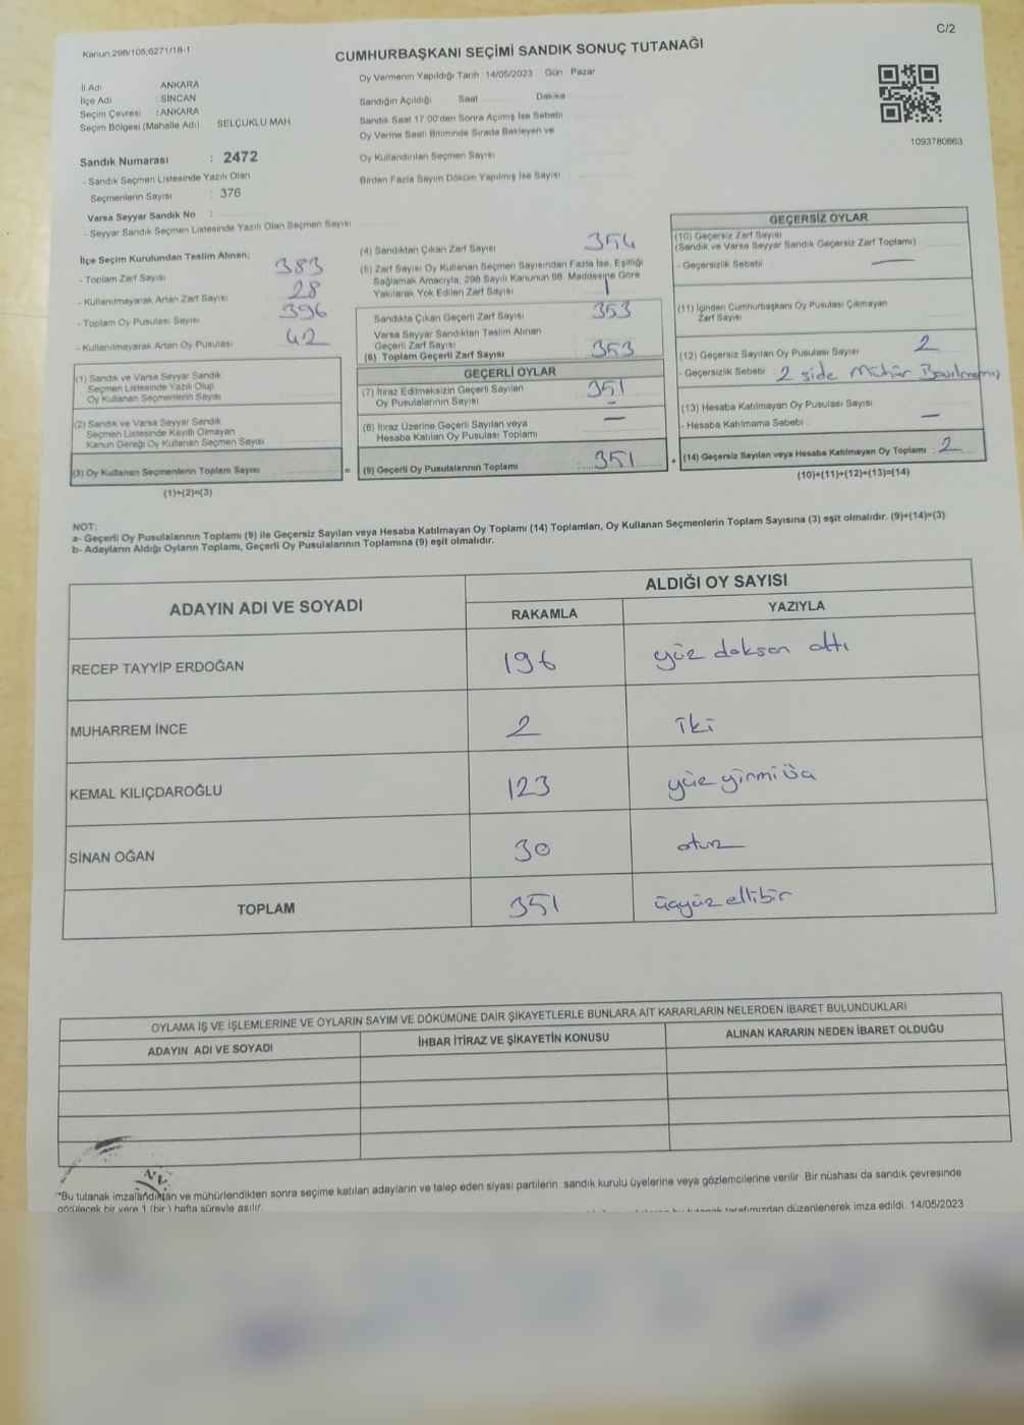 Kanun 298/105;6271/18-1
C/2
CUMHURBAŞKANI SEÇİMİ SANDIK SONUÇ TUTANAĞI
İl Adı : ANKARA
İlçe Adı : SİNCAN
Seçim Çevresi : ANKARA
Seçim Bölgesi (Mahalle Adı) SELÇUKLU MAH
Sandık Numarası : 2472
- Sandık Seçmen Listesinde Yazılı Olan
Seçmenlerin Sayısı : 376
Varsa Seyyar Sandık No :
- Seyyar Sandık Seçmen Listesinde Yazılı Olan Seçmen Sayısı
Oy Vermenin Yapıldığı Tarih 14/05/2023 Gün Pazar
Sandığın Açıldığı Saat Dakika
Sandık Saat 17:00'den Sonra Açılmış İse Sebebi
Oy Verme Saati Bitiminde Sırada Bekleyen ve
Oy Kullandırılan Seçmen Sayısı
Birden Fazla Sayım Döküm Yapılmış İse Sayısı
1093780663
İlçe Seçim Kurulundan Teslim Alınan;
- Toplam Zarf Sayısı 383
- Kullanılmayarak Artan Zarf Sayısı 28
- Toplam Oy Pusulası Sayısı 396
- Kullanılmayarak Artan Oy Pusulası 42
(1) Sandık ve Varsa Seyyar Sandık
Seçmen Listesinde Yazılı Olup
Oy Kullanan Seçmenlerin Sayısı
(2) Sandık ve Varsa Seyyar Sandık
Seçmen Listesinde Kayıtlı Olmayan
Kanun Gereği Oy Kullanan Seçmen Sayısı
(3) Oy Kullanan Seçmenlerin Toplam Sayısı
(1)+(2)=(3)
(4) Sandıktan Çıkan Zarf Sayısı 354
(5) Zarf Sayısı Oy Kullanan Seçmen Sayısından Fazla İse, Eşitliği
Sağlamak Amacıyla, 298 Sayılı Kanunun 98. Maddesine Göre
Yakılarak Yok Edilen Zarf Sayısı 1
Sandıkta Çıkan Geçerli Zarf Sayısı 353
Varsa Seyyar Sandıktan Teslim Alınan
Geçerli Zarf Sayısı
(6) Toplam Geçerli Zarf Sayısı 353
GEÇERLİ OYLAR
(7) İtiraz Edilmeksizin Geçerli Sayılan
Oy Pusulalarının Sayısı 351
(8) İtiraz Üzerine Geçerli Sayılan veya
Hesaba Katılan Oy Pusulası Toplamı —
= (9) Geçerli Oy Pusulalarının Toplamı 351
GEÇERSİZ OYLAR
(10) Geçersiz Zarf Sayısı
(Sandık ve Varsa Seyyar Sandık Geçersiz Zarf Toplamı)
- Geçersizlik Sebebi —
(11) İçinden Cumhurbaşkanı Oy Pusulası Çıkmayan
Zarf Sayısı
(12) Geçersiz Sayılan Oy Pusulası Sayısı 2
- Geçersizlik Sebebi 2 side Mühür
(13) Hesaba Katılmayan Oy Pusulası Sayısı
- Hesaba Katılmama Sebebi —
+ (14) Geçersiz Sayılan veya Hesaba Katılmayan Oy Toplamı : 2
(10)+(11)+(12)+(13)=(14)
NOT:
a- Geçerli Oy Pusulalarının Toplamı (9) ile Geçersiz Sayılan veya Hesaba Katılmayan Oy Toplamı (14) Toplamları, Oy Kullanan Seçmenlerin Toplam Sayısına (3) eşit olmalıdır. (9)+(14)=(3)
b- Adayların Aldığı Oyların Toplamı, Geçerli Oy Pusulalarının Toplamına (9) eşit olmalıdır.
ADAYIN ADI VE SOYADI ALDIĞI OY SAYISI
RAKAMLA YAZIYLA
RECEP TAYYİP ERDOĞAN 196 yüz doksan altı
MUHARREM İNCE 2 iki
KEMAL KILIÇDAROĞLU 123 yüz yirmi üç
SİNAN OĞAN 30 otuz
TOPLAM 351 üçyüz ellibir
OYLAMA İŞ VE İŞLEMLERİNE VE OYLARIN SAYIM VE DÖKÜMÜNE DAİR ŞİKAYETLERLE BUNLARA AİT KARARLARIN NELERDEN İBARET BULUNDUKLARI
ADAYIN ADI VE SOYADI İHBAR İTİRAZ VE ŞİKAYETİN KONUSU ALINAN KARARIN NEDEN İBARET OLDUĞU
"Bu tutanak imzalandıktan ve mühürlendikten sonra seçime katılan adayların ve talep eden siyasi partilerin sandık kurulu üyelerine veya gözlemcilerine verilir. Bir nüshası da sandık çevresinde
görülecek bir yere 1 (bir) hafta süreyle asılır. tarafımızdan düzenlenerek imza edildi. 14/05/2023